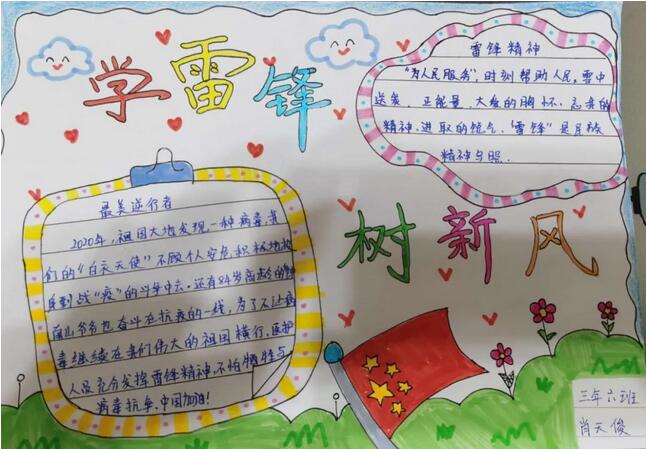 学雷锋
雷锋精神
"为人民服务",时刻帮助人民,雪中
送炭、正能量、大度的胸怀、忘我的
精神、进取的锐气,"雷锋"是民族
精神与照.
最美逆行者
2020年,祖国大地发现一种病毒,我
们的"白衣天使"不顾个人安危,积极地投
到战"疫"的斗争中去。还有84岁高龄的钟
南山爷爷也奋斗在抗疫的一线,为了不让病
毒继续在我们伟大的祖国横行,医护
人员充分发挥雷锋精神,不怕牺牲与
病毒抗争,中国加油!
树新风
三年六班
肖天俊